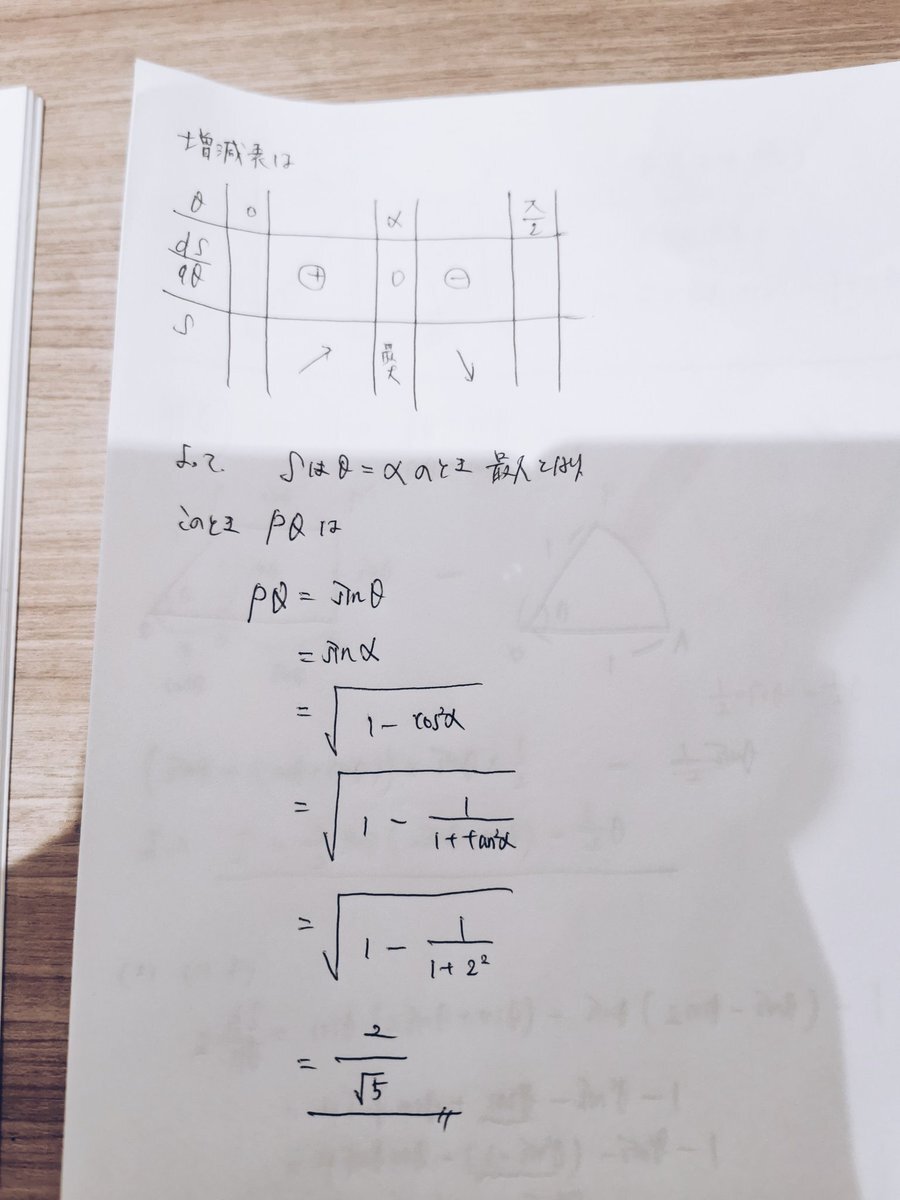 増減表は
θ 0 α π/2
dS/dθ ⊕ 0 ⊖
S ↗ 最大 ↘
よって Sはθ=αのとき 最大となり
このとき PQは
PQ = sinθ
= sinα
= √(1 - cos²α)
= √(1 - 1/(1+tan²α))
= √(1 - 1/(1+2²))
= 2/√5